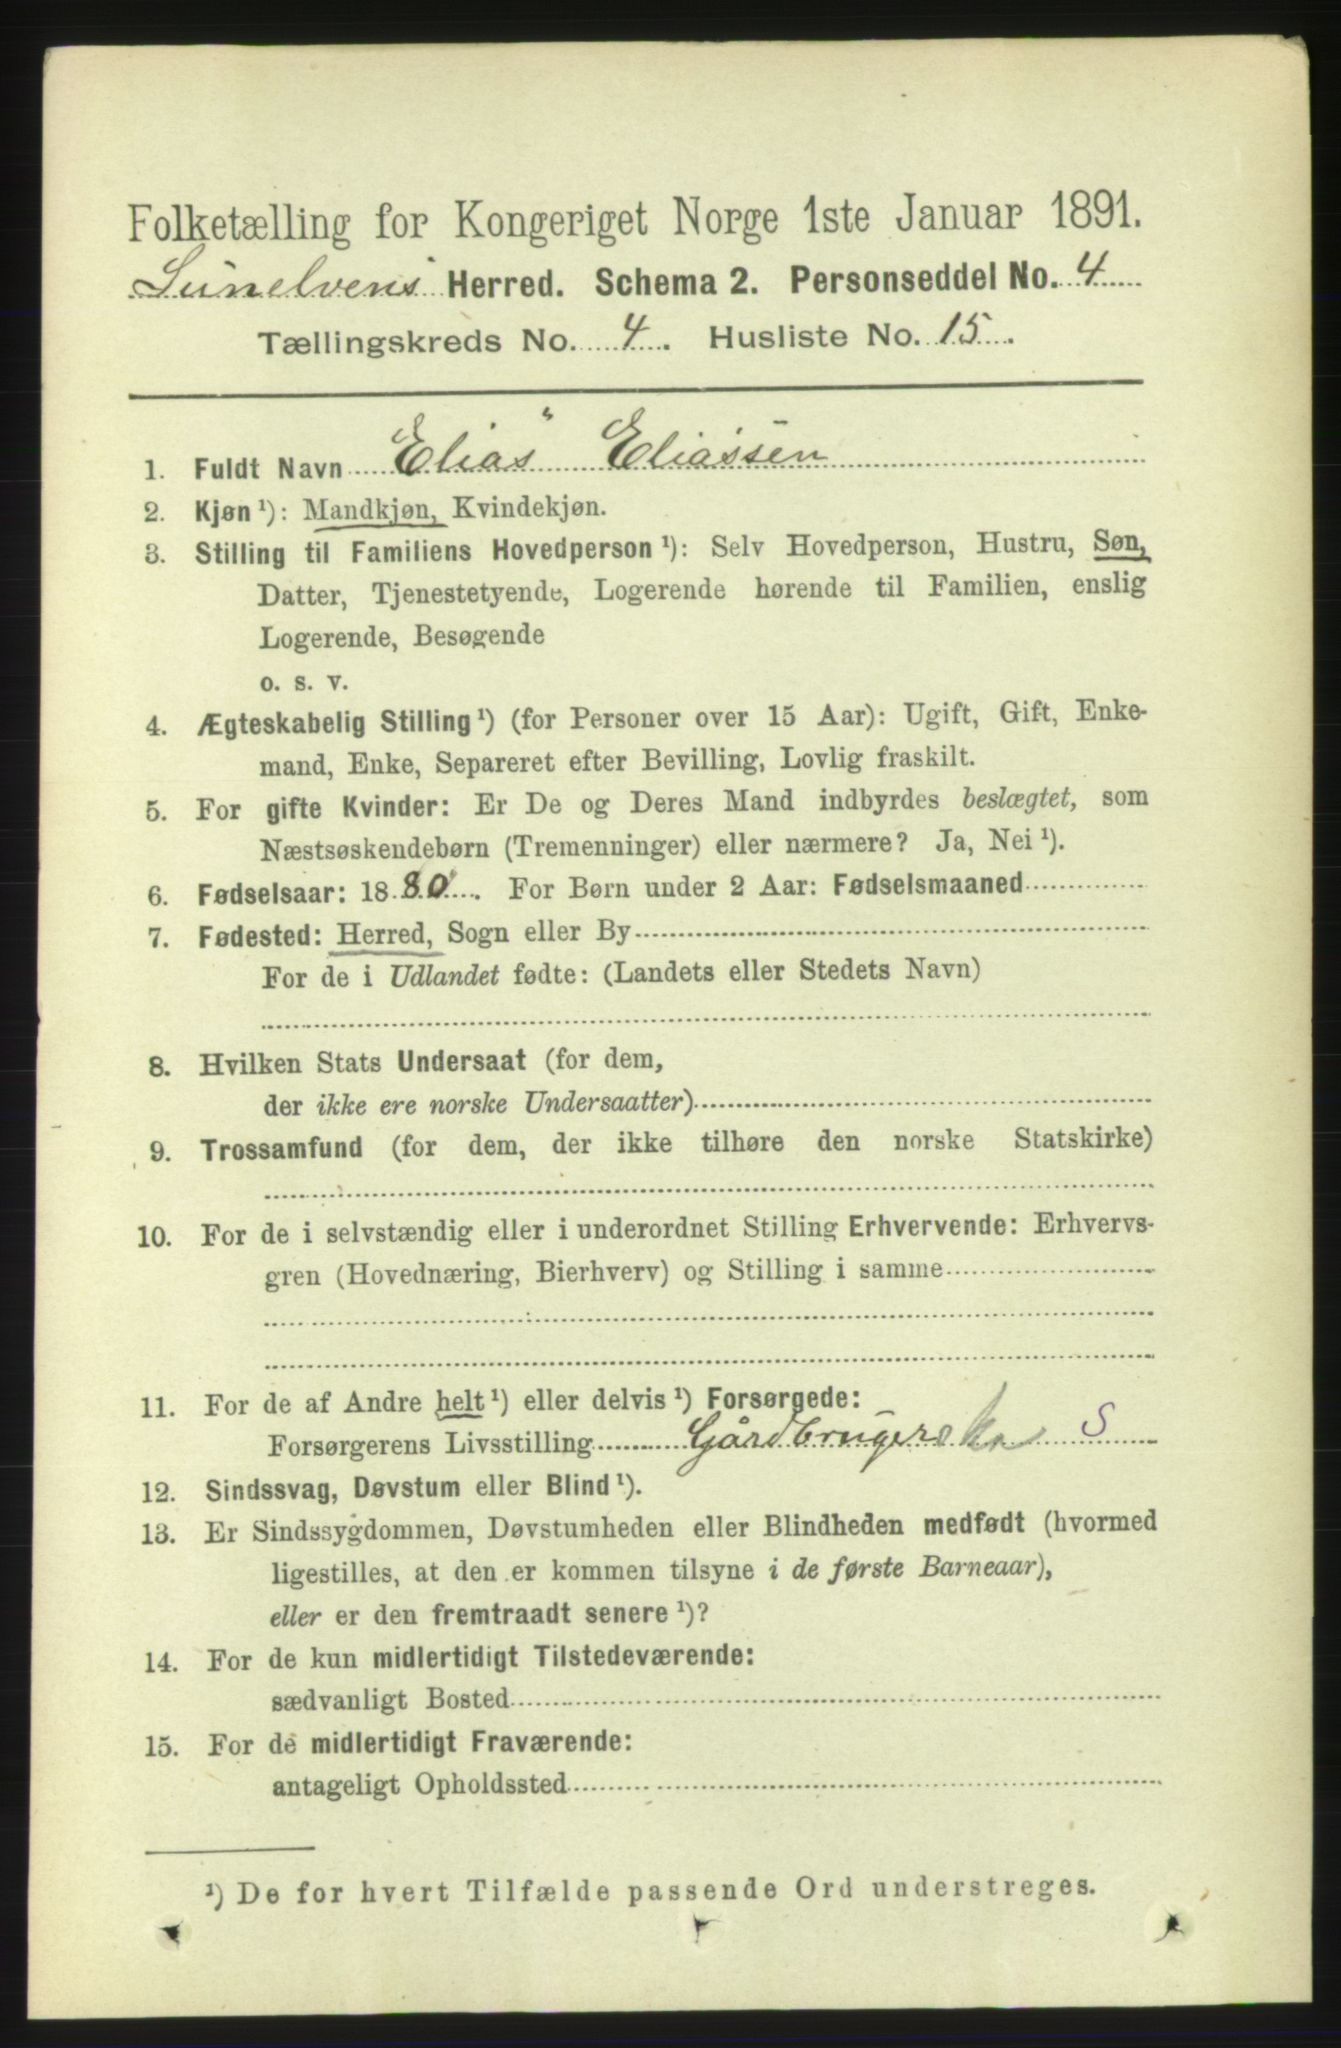 Folketælling for Kongeriget Norge 1ste Januar 1891.
Sunelvens Herred. Schema 2. Personseddel No. 4
Tællingskreds No. 4. Husliste No. 15.
1. Fuldt Navn Elias Eliassen
2. Kjøn ¹): Mandkjøn, Kvindekjøn.
3. Stilling til Familiens Hovedperson ¹): Selv Hovedperson, Hustru, Søn,
Datter, Tjenestetyende, Logerende hørende til Familien, enslig
Logerende, Besøgende
o. s. v.
4. Ægteskabelig Stilling ¹) (for Personer over 15 Aar): Ugift, Gift, Enke-
mand, Enke, Separeret efter Bevilling, Lovlig fraskilt.
5. For gifte Kvinder: Er De og Deres Mand indbyrdes beslægtet, som
Næstsøskendebørn (Tremenninger) eller nærmere? Ja, Nei ¹).
6. Fødselsaar: 1880. For Børn under 2 Aar: Fødselsmaaned
7. Fødested: Herred, Sogn eller By
For de i Udlandet fødte: (Landets eller Stedets Navn)
8. Hvilken Stats Undersaat (for dem,
der ikke ere norske Undersaatter)
9. Trossamfund (for dem, der ikke tilhøre den norske Statskirke)
10. For de i selvstændig eller i underordnet Stilling Erhvervende: Erhvervs-
gren (Hovednæring, Bierhverv) og Stilling i samme
11. For de af Andre helt ¹) eller delvis ¹) Forsørgede:
Forsørgerens Livsstilling Gårdbrugerske S
12. Sindssvag, Døvstum eller Blind ¹).
13. Er Sindssygdommen, Døvstumheden eller Blindheden medfødt (hvormed
ligestilles, at den er kommen tilsyne i de første Barneaar),
eller er den fremtraadt senere ¹)?
14. For de kun midlertidigt Tilstedeværende:
sædvanligt Bosted
15. For de midlertidigt Fraværende:
antageligt Opholdssted
¹) De for hvert Tilfælde passende Ord understreges.